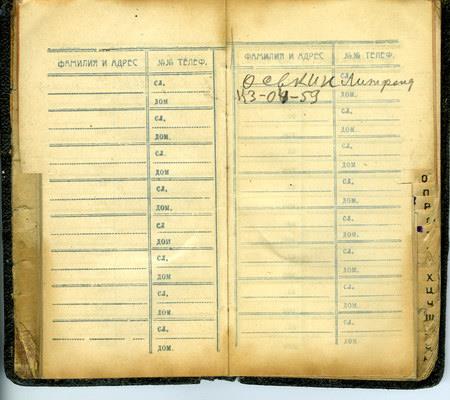 ФАМИЛИЯ И АДРЕС №№ ТЕЛЕФ.
СЛ.
ДОМ
СЛ.
ДОМ.
СЛ.
ДОМ
СЛ.
ДОМ.
СЛ
ДОМ
СЛ.
ДОМ
СЛ.
ДОМ.
СЛ.
ДОМ.
ФАМИЛИЯ И АДРЕС №№ ТЕЛЕФ.
СЛ.
Литфонд
К3-04-59 ДОМ.
СЛ.
ДОМ.
СЛ.
ДОМ.
СЛ.
ДОМ.
СЛ.
ДОМ.
СЛ.
ДОМ.
СЛ.
ДОМ.
СЛ.
ДОМ
О
П
Р
Х
Ц
Ч
Ш